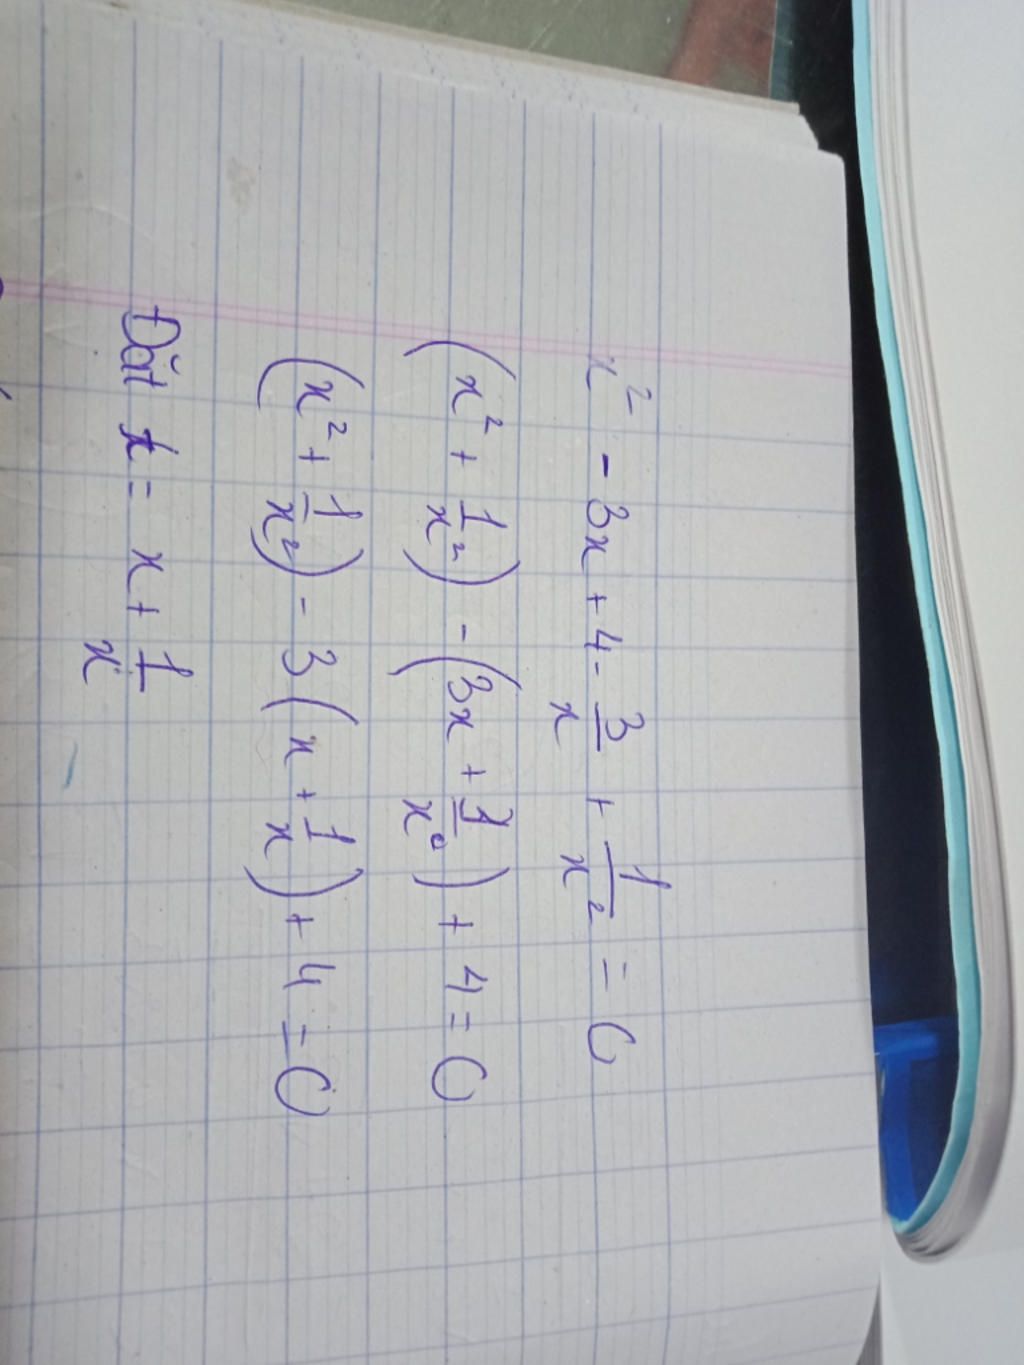 x² - 3x + 4 - 3/x + 1/x² = 0
(x² + 1/x²) - (3x + 3/x) + 4 = 0
(x² + 1/x²) - 3(x + 1/x) + 4 = 0
Đặt t = x + 1/x